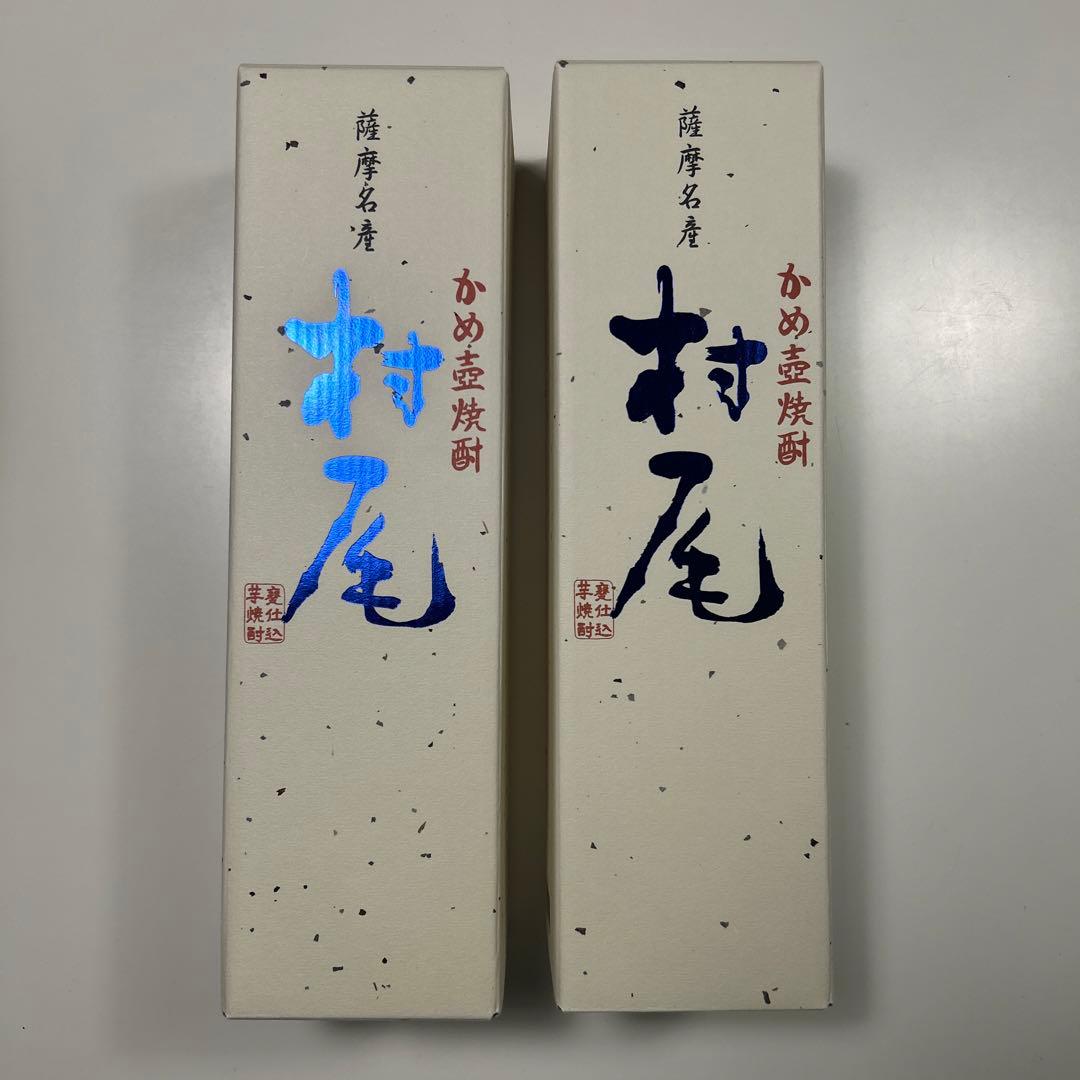 薩摩名産
かめ壺焼酎
村尾
甕仕込
芋焼酎
薩摩名産
かめ壺焼酎
村尾
甕仕込
芋焼酎